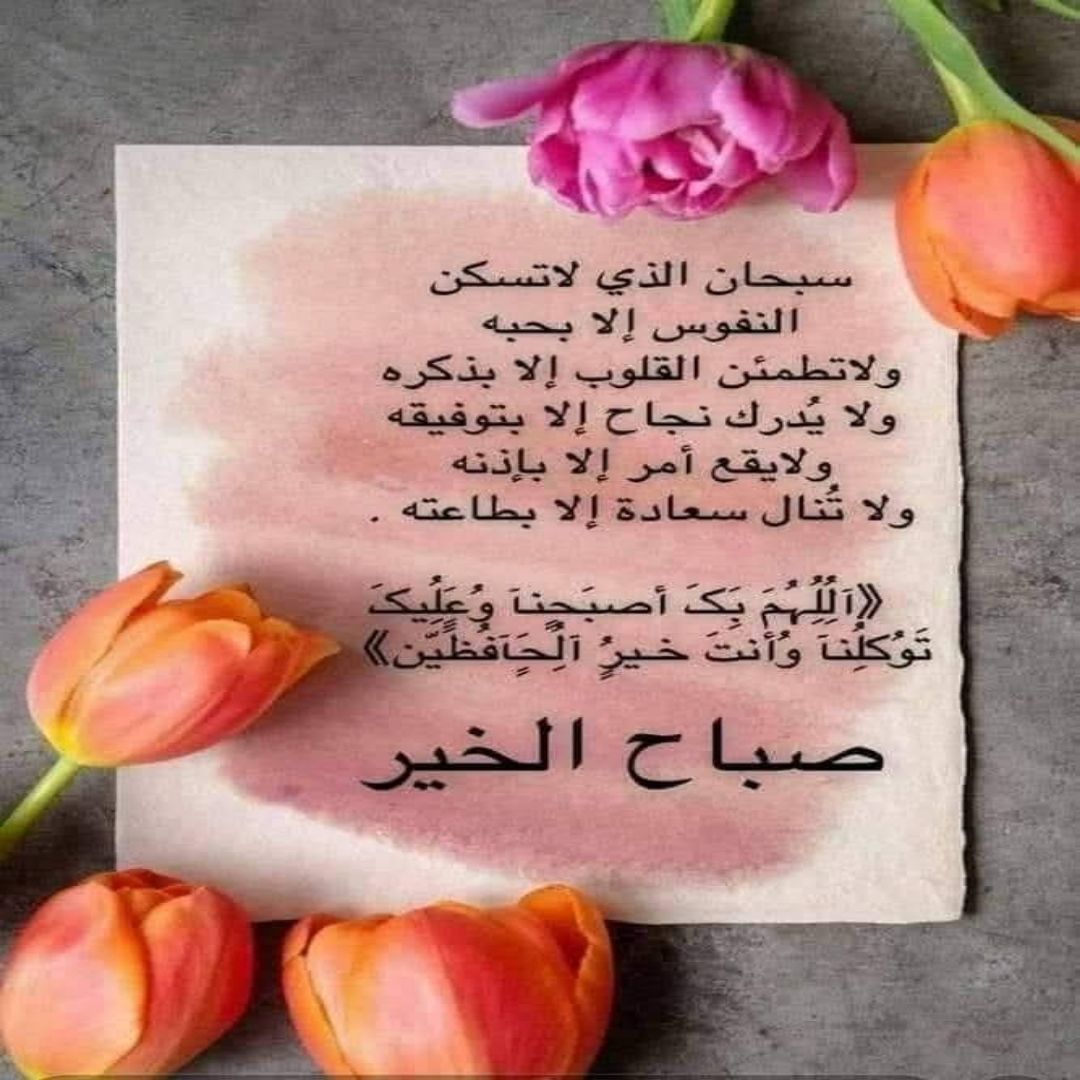 سبحان الذي لاتسكن
النفوس إلا بحبه
ولاتطمئن القلوب إلا بذكره
ولا يُدرك نجاح إلا بتوفيقه
ولايقع أمر إلا بإذنه
ولا تُنال سعادة إلا بطاعته .
《اَلُلُِهُمَ بَِکَ أصبَحٍنِاَ وُعَلُِيکَ
تَوُکلُِناَ وُأنتَ خيرٌُ اَلُِحَاَفُظٌيّن》
صباح الخير